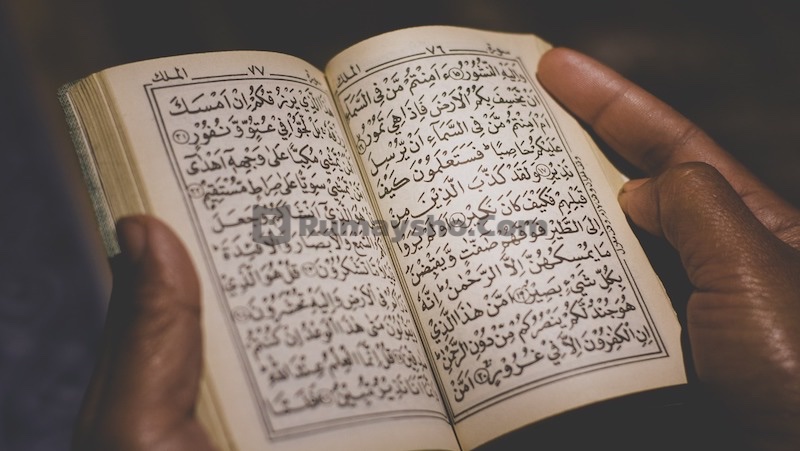 سورة ٧٦ الملك
وَاِلَيْهِ النُّشُوْرُ ١٥ ءَاَمِنْتُمْ مَّنْ فِي السَّمَآءِ
اَنْ يَّخْسِفَ بِكُمُ الْاَرْضَ فَاِذَا هِيَ تَمُوْرُ
اَمْ اَمِنْتُمْ مَّنْ فِي السَّمَآءِ اَنْ يُّرْسِلَ
عَلَيْكُمْ حَاصِبًا فَسَتَعْلَمُوْنَ كَيْفَ
نَذِيْرِ ١٧ وَلَقَدْ كَذَّبَ الَّذِيْنَ مِنْ
قَبْلِهِمْ فَكَيْفَ كَانَ نَكِيْرِ ١٨ اَوَلَمْ يَرَوْا
اِلَى الطَّيْرِ فَوْقَهُمْ صٰٓفّٰتٍ وَّيَقْبِضْنَ
مَا يُمْسِكُهُنَّ اِلَّا الرَّحْمٰنُ اِنَّهٗ
بِكُلِّ شَيْءٍ بَصِيْرٌ ١٩ اَمَّنْ هٰذَا الَّذِيْ
هُوَ جُنْدٌ لَّكُمْ يَنْصُرُكُمْ مِّنْ دُوْنِ الرَّحْمٰنِ
اِنِ الْكٰفِرُوْنَ اِلَّا فِيْ غُرُوْرٍ ٢٠ اَمَّنْ
سورة ٧٧ الملك
هٰذَا الَّذِيْ يَرْزُقُكُمْ اِنْ اَمْسَكَ
بَلْ لَّجُّوْا فِيْ عُتُوٍّ وَّنُفُوْرٍ ٢١
يَّمْشِيْ مُكِبًّا عَلٰى وَجْهِهٖٓ اَهْدٰٓى
يَّمْشِيْ سَوِيًّا عَلٰى صِرَاطٍ مُّسْتَقِيْمٍ ٢٢
الَّذِيْٓ وَجَعَلَ
السَّمْعَ وَالْاَبْصَارَ وَالْاَفْـِٕدَةَ
مَّا تَشْكُرُوْنَ ٢٣ قُلْ هُوَ الَّذِيْ
فِي الْاَرْضِ وَاِلَيْهِ تُحْشَرُوْنَ
مَتٰى هٰذَا الْوَعْدُ اِنْ كُنْتُمْ
قُلْ اِنَّمَا الْعِلْمُ عِنْدَ اللّٰهِ
اَنَا نَذِيْرٌ مُّبِيْنٌ ٢٦ فَلَمَّا
Rumaysho.Com